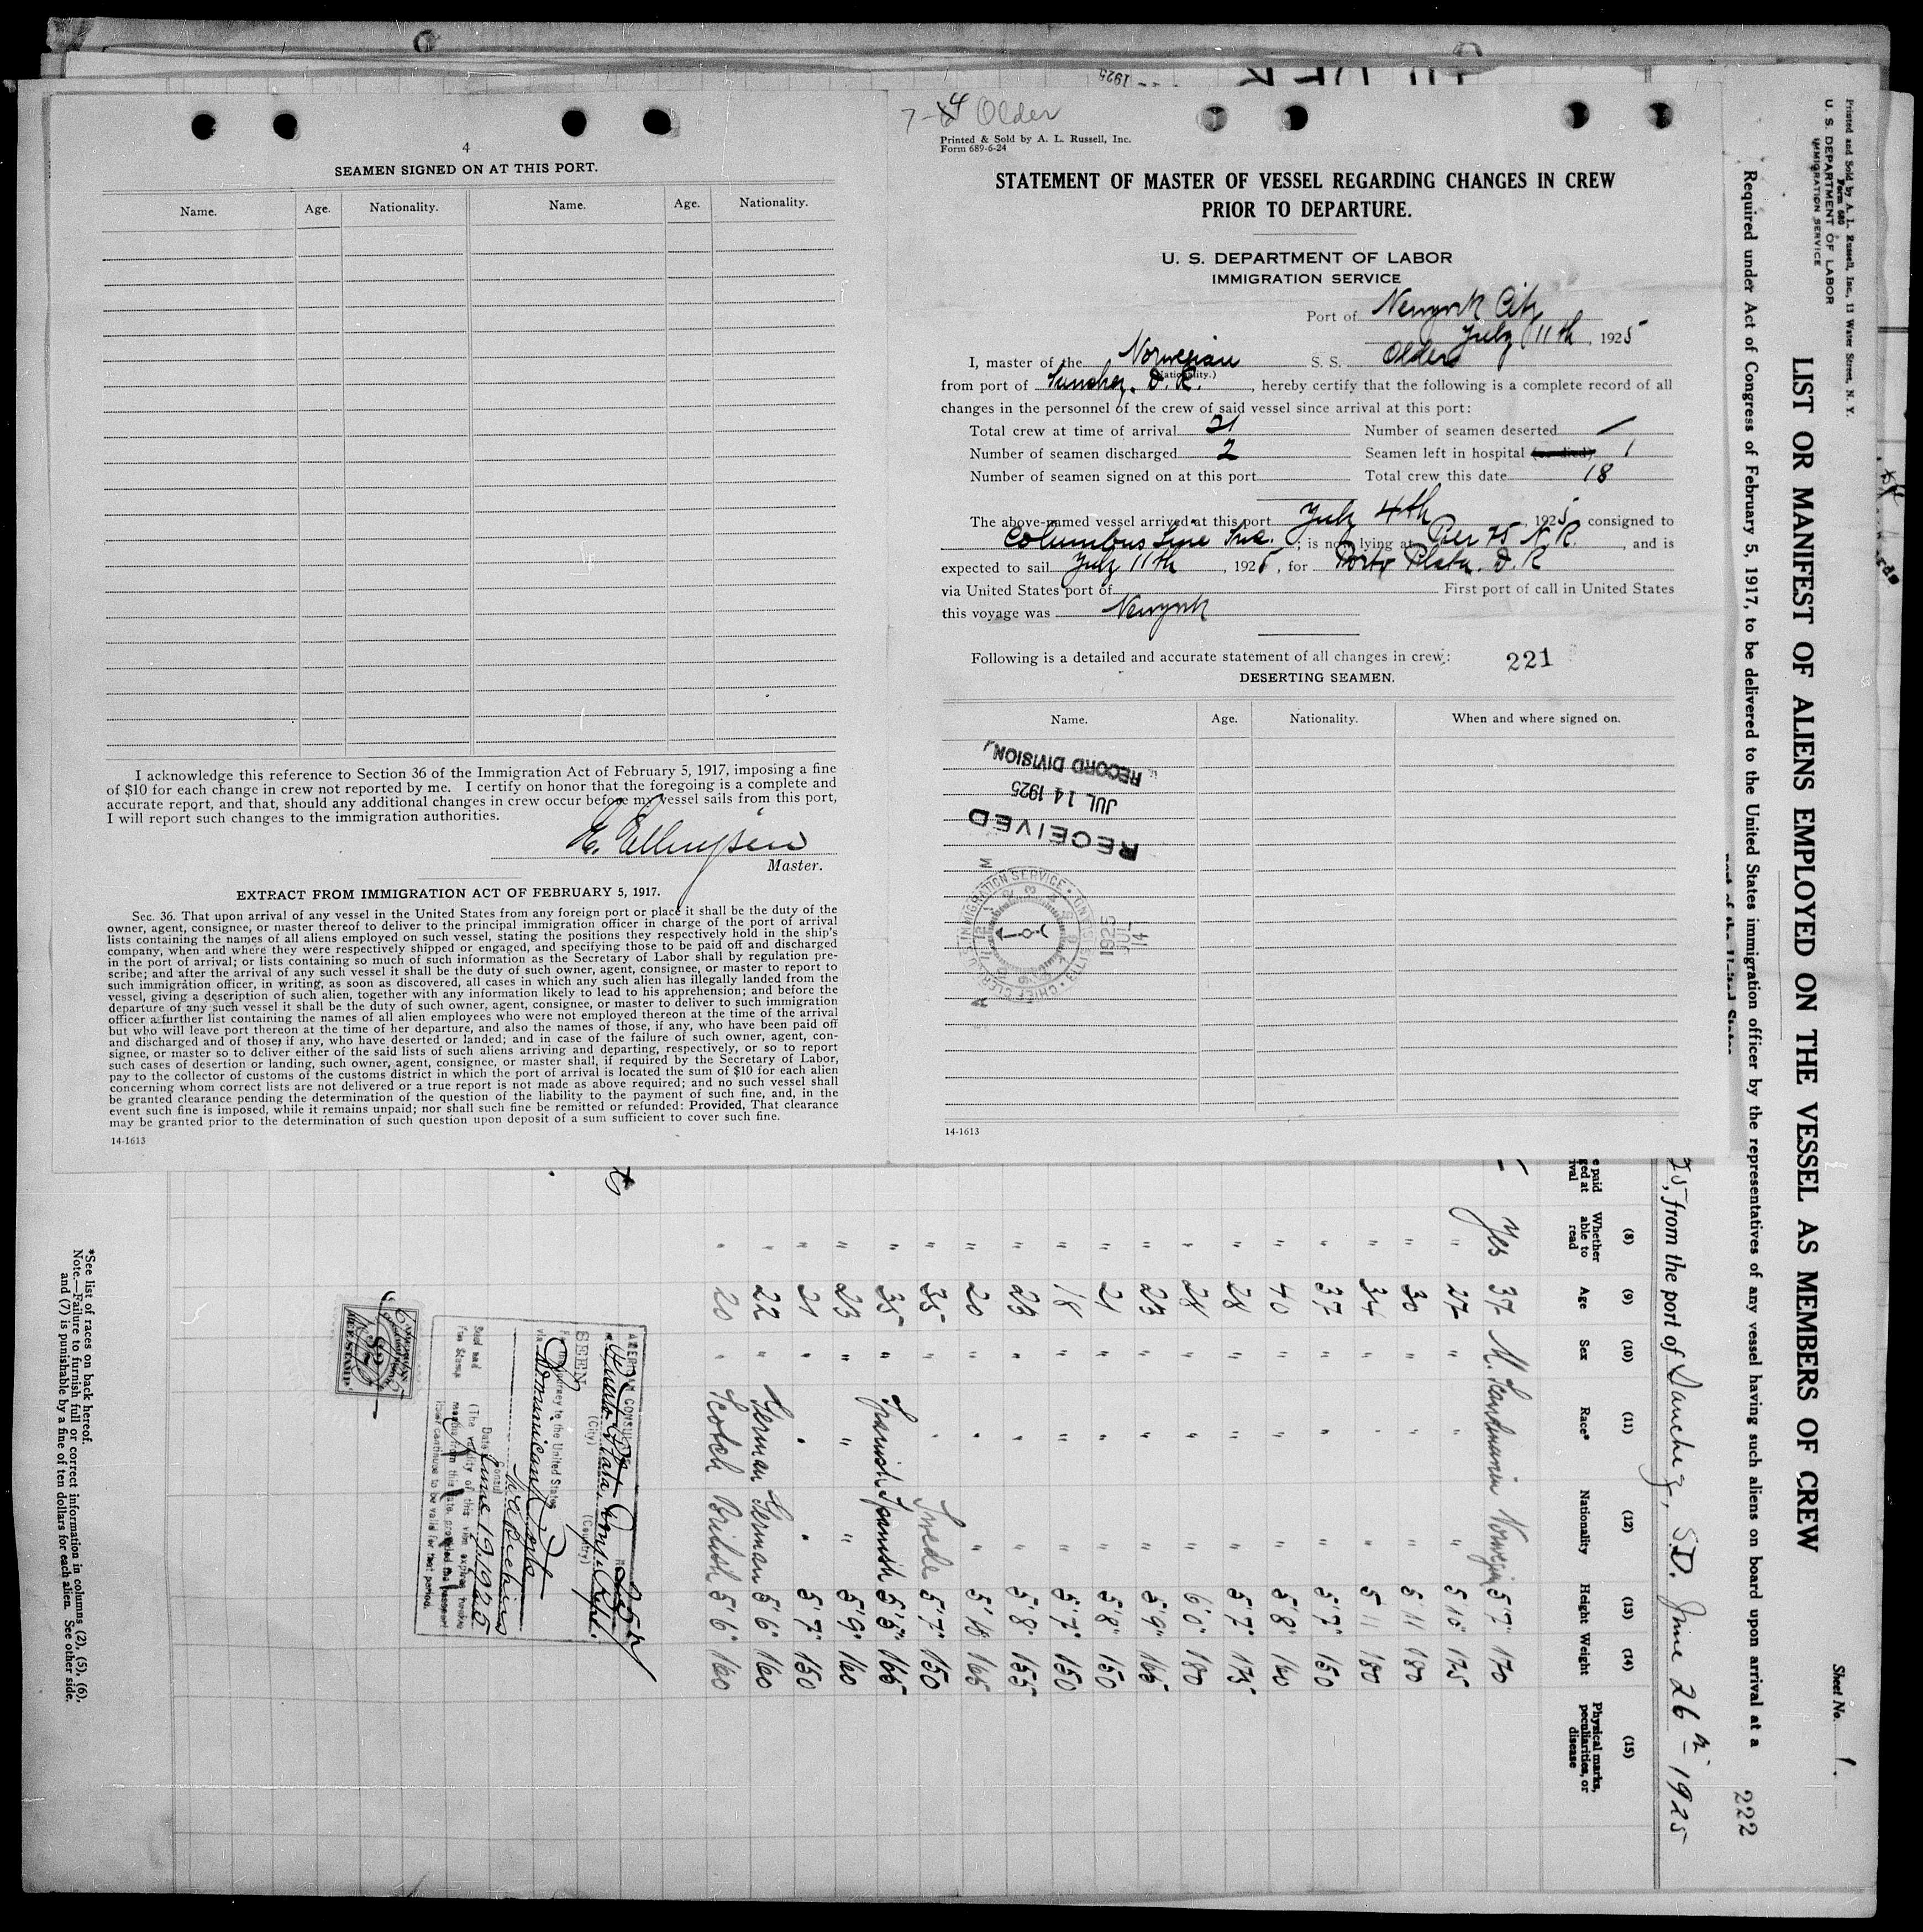 4
SEAMEN SIGNED ON AT THIS PORT.
Name. Age. Nationality. Name. Age. Nationality.
I acknowledge this reference to Section 36 of the Immigration Act of February 5, 1917, imposing a fine
of $10 for each change in crew not reported by me. I certify on honor that the foregoing is a complete and
accurate report, and that, should any additional changes in crew occur before my vessel sails from this port,
I will report such changes to the immigration authorities.
Master.
EXTRACT FROM IMMIGRATION ACT OF FEBRUARY 5, 1917.
Sec. 36. That upon arrival of any vessel in the United States from any foreign port or place it shall be the duty of the
owner, agent, consignee, or master thereof to deliver to the principal immigration officer in charge of the port of arrival
lists containing the names of all aliens employed on such vessel, stating the positions they respectively hold in the ship's
company, when and where they were respectively shipped or engaged, and specifying those to be paid off and discharged
in the port of arrival; or lists containing so much of such information as the Secretary of Labor shall by regulation pre-
scribe; and after the arrival of any such vessel it shall be the duty of such owner, agent, consignee, or master to report to
such immigration officer, in writing, as soon as discovered, all cases in which any such alien has illegally landed from the
vessel, giving a description of such alien, together with any information likely to lead to his apprehension; and before the
departure of any such vessel it shall be the duty of such owner, agent, consignee, or master to deliver to such immigration
officer a further list containing the names of all alien employees who were not employed thereon at the time of the arrival
but who will leave port thereon at the time of her departure, and also the names of those, if any, who have been paid off
and discharged and of those, if any, who have deserted or landed; and in case of the failure of such owner, agent, con-
signee, or master so to deliver either of the said lists of such aliens arriving and departing, respectively, or so to report
such cases of desertion or landing, such owner, agent, consignee, or master shall, if required by the Secretary of Labor,
pay to the collector of customs of the customs district in which the port of arrival is located the sum of $10 for each alien
concerning whom correct lists are not delivered or a true report is not made as above required; and no such vessel shall
be granted clearance pending the determination of the question of the liability to the payment of such fine, and, in the
event such fine is imposed, while it remains unpaid; nor shall such fine be remitted or refunded: Provided, That clearance
may be granted prior to the determination of such question upon deposit of a sum sufficient to cover such fine.
14-1613
7-4 Older
Printed & Sold by A. L. Russell, Inc.
Form 689-6-24
STATEMENT OF MASTER OF VESSEL REGARDING CHANGES IN CREW
PRIOR TO DEPARTURE.
U. S. DEPARTMENT OF LABOR
IMMIGRATION SERVICE
Port of Newyork City
July 11th, 1925
I, master of the Norwegian S. S. Older
(Nationality.)
from port of D. R., hereby certify that the following is a complete record of all
changes in the personnel of the crew of said vessel since arrival at this port:
Total crew at time of arrival 21 Number of seamen deserted —
Number of seamen discharged 2 Seamen left in hospital (or died) 1
Number of seamen signed on at this port Total crew this date 18
The above-named vessel arrived at this port July 4th, 1925, consigned to
Columbus Line Inc.; is now lying at Pier 75 N.R., and is
expected to sail July 11th, 1925, for Porto Plata. D. R
via United States port of First port of call in United States
this voyage was Newyork
Following is a detailed and accurate statement of all changes in crew: 221
DESERTING SEAMEN.
Name. Age. Nationality. When and where signed on.
RECEIVED
JUL 14 1925
RECORD DIVISION
1925
JUL
14
14-1613
Printed and Sold by A. L. Russell, Inc., 11 Water Street, N. Y.
Form 680
U. S. DEPARTMENT OF LABOR
IMMIGRATION SERVICE
Sheet No. 1.
LIST OR MANIFEST OF ALIENS EMPLOYED ON THE VESSEL AS MEMBERS OF CREW
Required under Act of Congress of February 5, 1917, to be delivered to the United States immigration officer by the representatives of any vessel having such aliens on board upon arrival at a
222
25, from the port of Sanchez, S.D. June 26th 1925
(8) (9) (10) (11) (12) (13) (14) (15)
Whether able to read Age Sex Race* Nationality Height Weight Physical marks, peculiarities, or disease
Yes 37 M. Scandinavian Norwegian 5'7" 170
" 27 " " " 5 10" 175
" 30 " " " 5 11 180
" 34 " " " 5 11 180
" 37 " " " 5'7" 150
" 40 " " " 5'8" 160
" 28 " " " 5'7" 175
" 28 " " " 6'0" 180
" 23 " " " 5'9" 165
" 21 " " " 5'8" 150
" 18 " " " 5'7" 150
" 23 " " " 5'8" 155
" 20 " " " 5'10 165
" 35 " " Swede 5'7" 150
" 35 " Spanish Spanish 5'5" 165
" 23 " " " 5'9" 160
" 21 " " " 5'7" 150
" 22 " German German 5'6" 160
" 20 " Scotch British 5'6" 160
AMERICAN CONSULATE
Puerto Plata, Dom. Repb.
(City) (Country)
SEEN
For the journey to the United States
via
Date June 19, 1925
*See list of races on back hereof.
Note.—Failure to furnish full or correct information in columns (2), (5), (6),
and (7) is punishable by a fine of ten dollars for each alien. See other side.